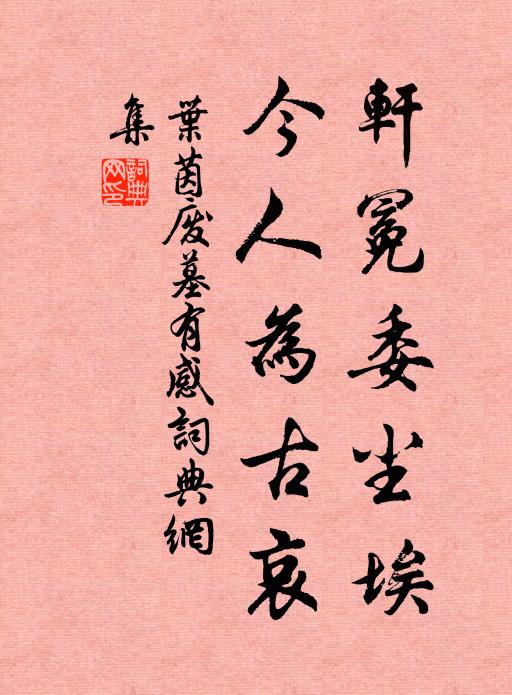 軒冕委尘埃
今人為古哀
葉茵廢墓有感詞典網
集
詞典
网印